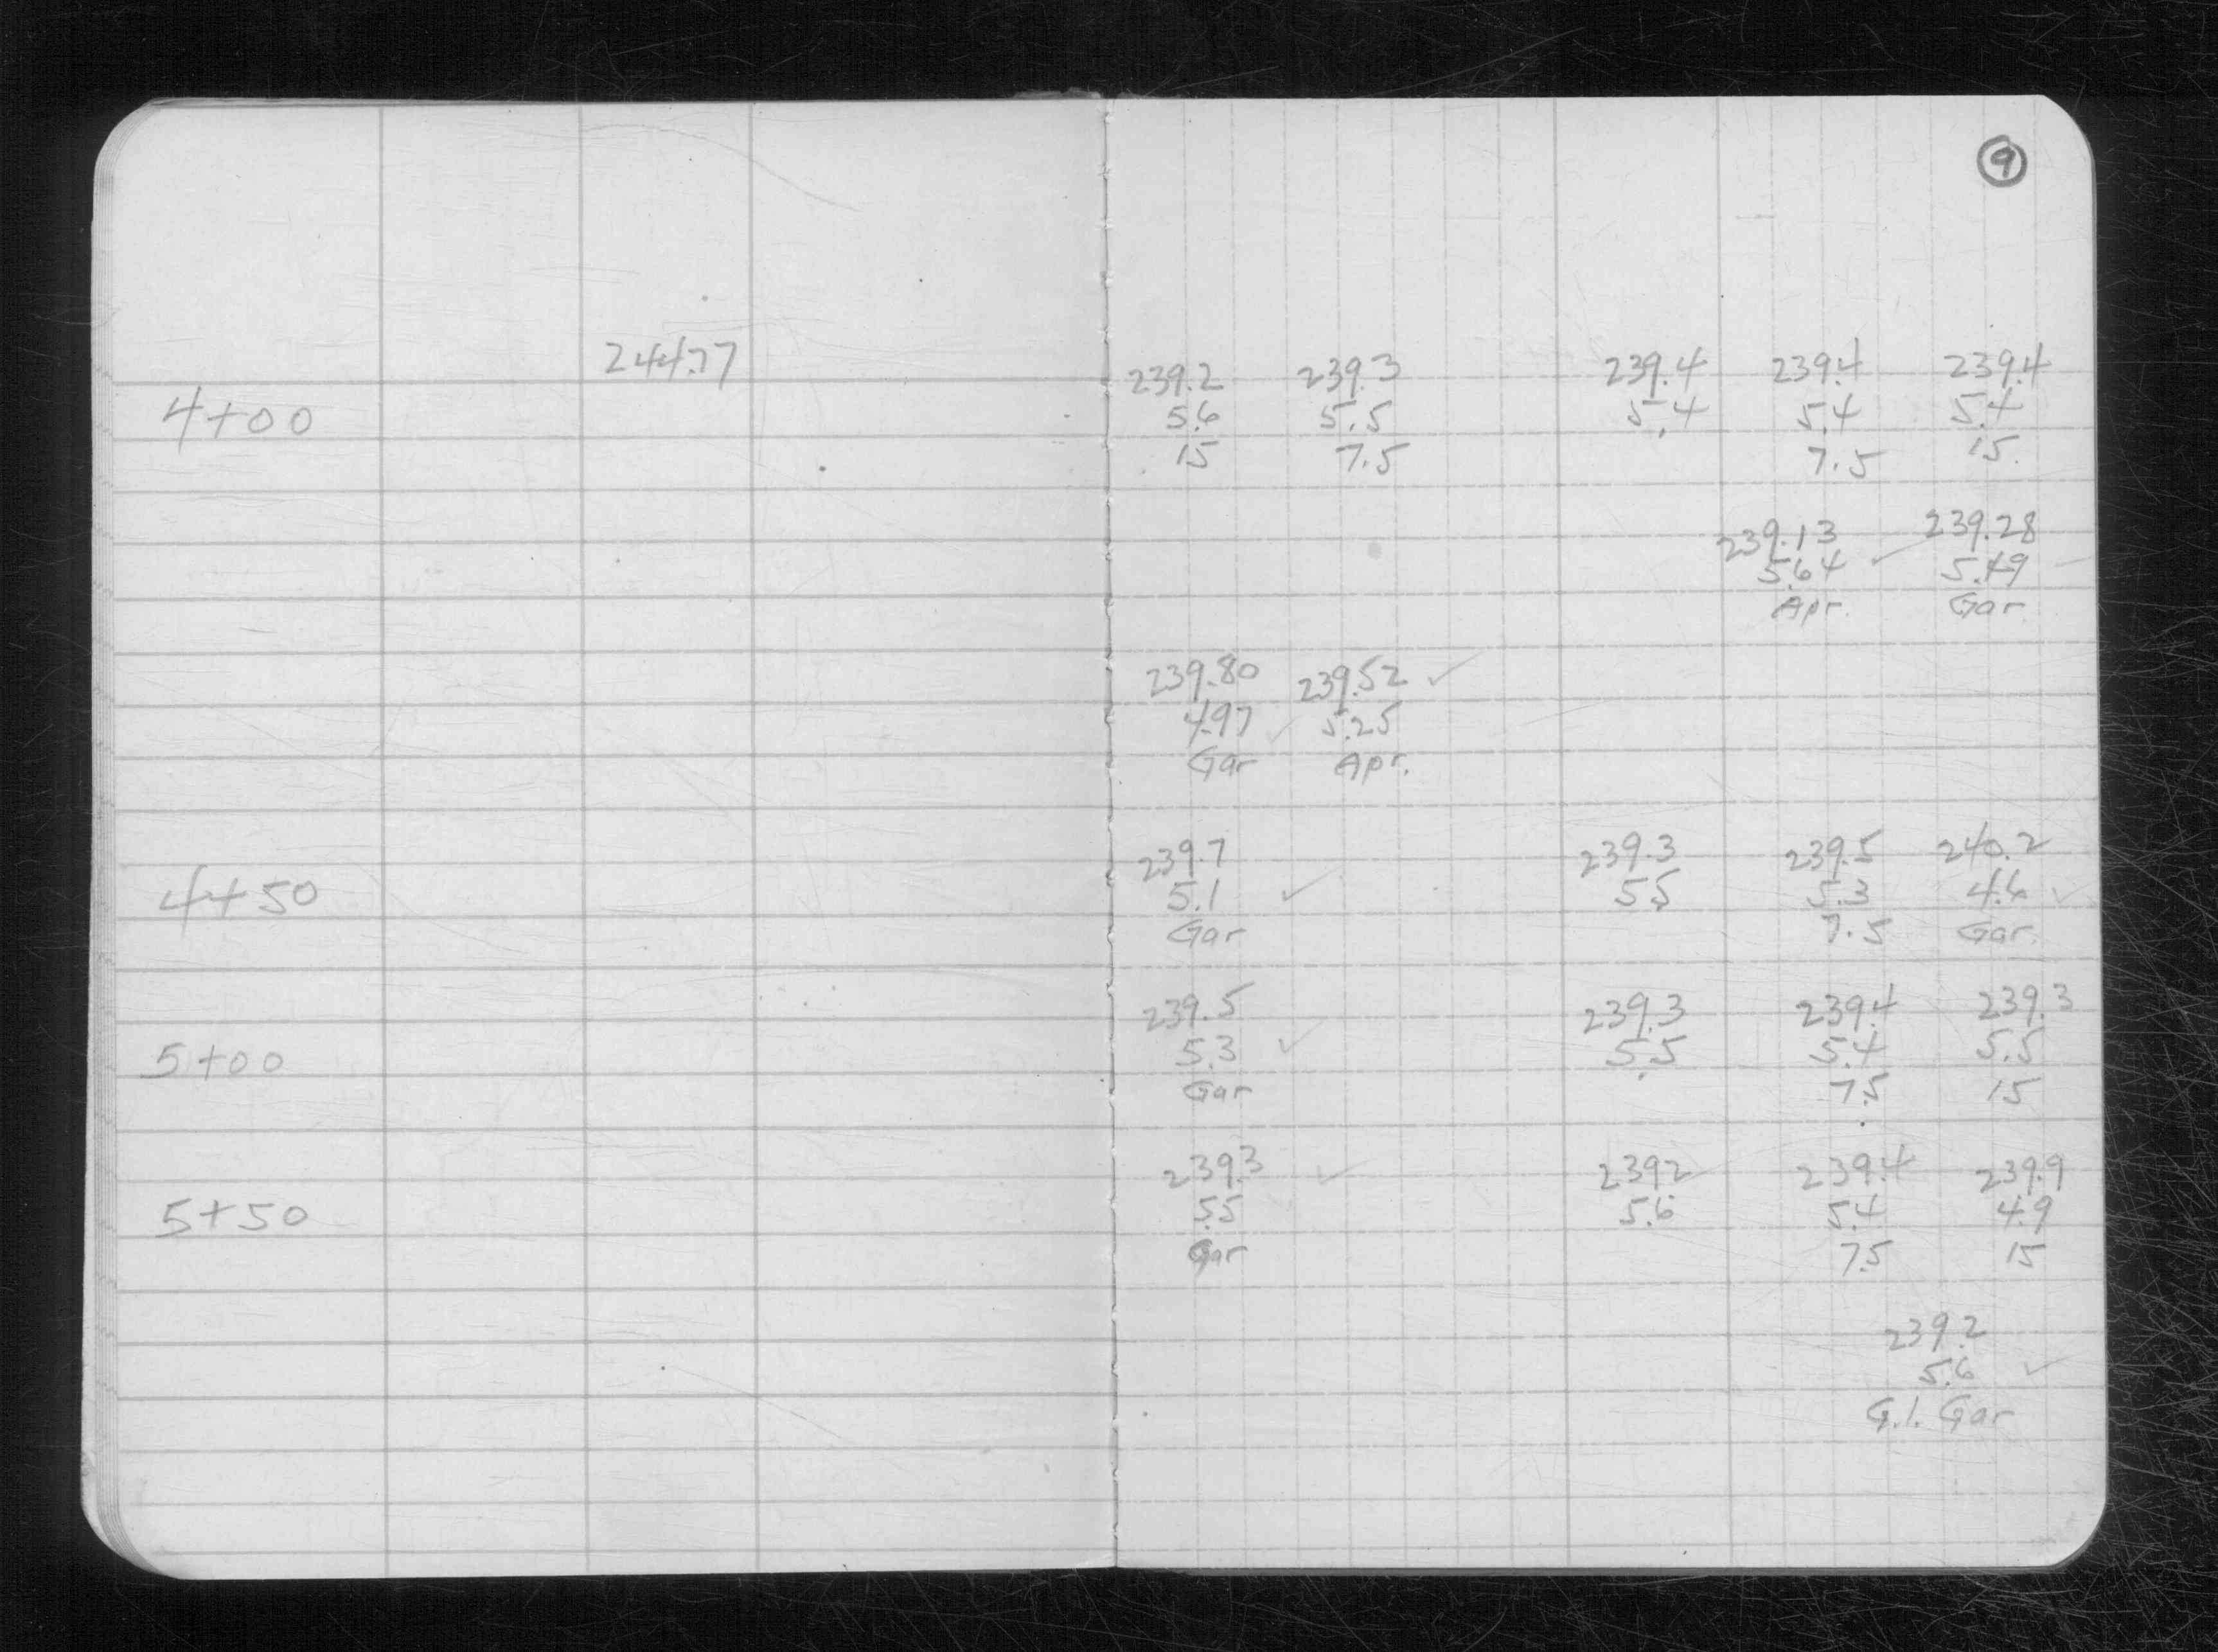 9
244.77
239.2 239.3 239.4 239.4 239.4
4+00 5.6 5.5 5.4 5.4 5.4
15 7.5 7.5 15
239.13 239.28
5.64 ✓ 5.49
Apr. Gar
239.80 239.52 ✓
4.97 ✓ 5.25
Gar Apr.
239.7 239.3 239.5 240.2
4+50 5.1 ✓ 5.5 5.3 4.6 ✓
Gar 7.5 Gar.
239.5 239.3 239.4 239.3
5+00 5.3 ✓ 5.5 5.4 5.5
Gar 7.5 15
239.3 ✓ 239.2 239.4 239.9
5+50 5.5 5.6 5.4 4.9
Gar 7.5 15
239.2
5.6 ✓
G.I. Gar